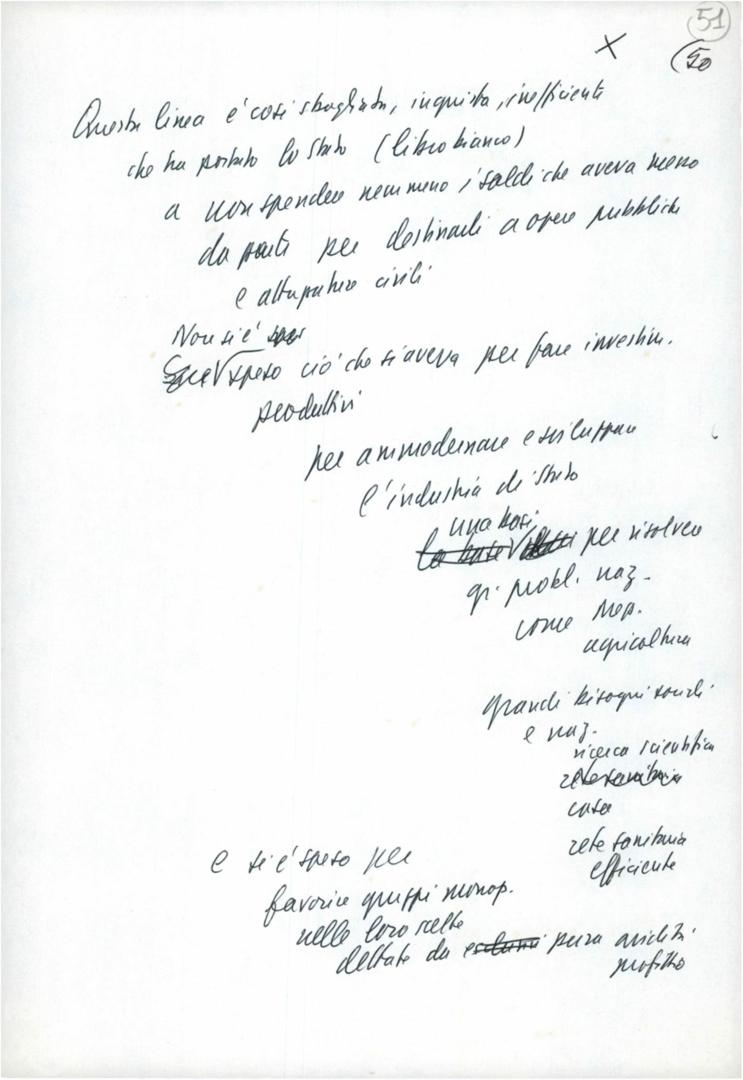 51
X
(50
Questa linea è così sbagliata, ingiusta, inefficiente
che ha portato lo Stato (libro bianco)
a non spendere nemmeno i soldi che aveva messo
da parte per destinarli a opere pubbliche
e attrezzature civili
Non si è
speso ciò che si aveva per fare investim.
produttivi
per ammodernare e sviluppare
l'industria di Stato
una basi
la base per risolvere
gr. probl. naz.
come Mer.
agricoltura
grandi bisogni sociali
e naz.
ricerca scientifica
rete sanitaria
casa
rete sanitaria
efficiente
e si è speso per
favorire gruppi monop.
nelle loro scelte
dettate da pura avidità
profitto